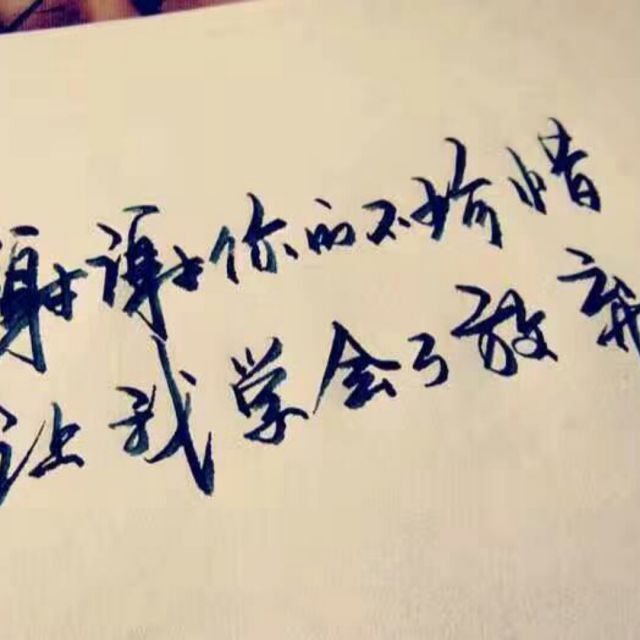 谢谢你的不珍惜
让我学会了放弃